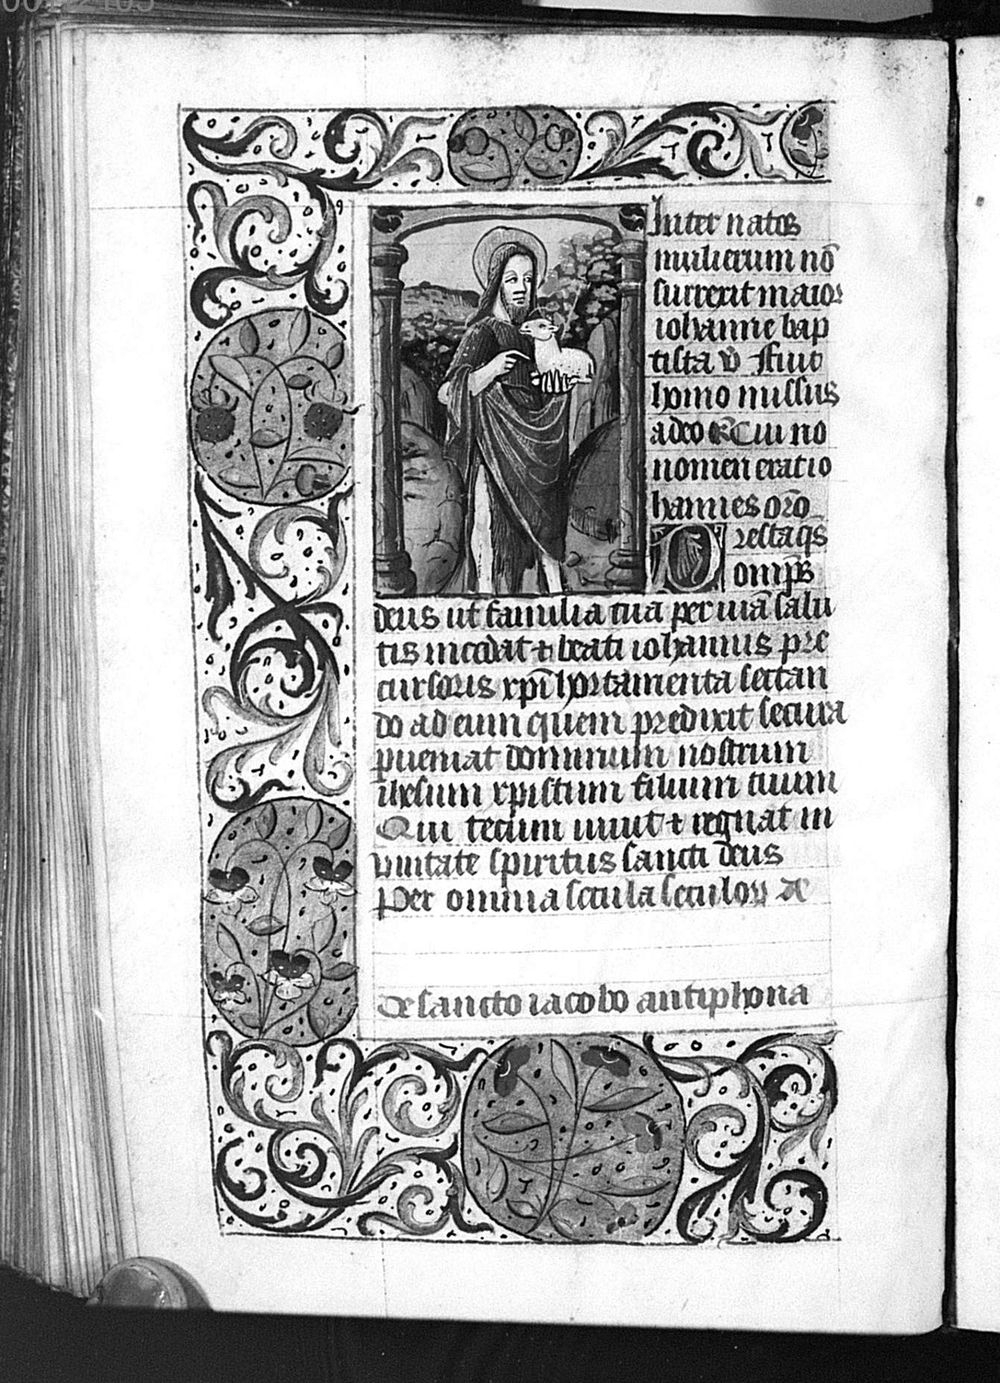 Inter natos
mulierum nō
surrexit maior
iohanne bap
tista v̄ Fuit
homo missus
a deo R̄ Cui no
nomen erat io
hannes orō
resta qs
Q omp̄s
deus ut familia tua per uiā salu
tis incedat ⁊ beati iohannis pre
cursoris xp̄i hortamenta sectan
do ad eum quem predixit secura
ꝑueniat dominum nostrum
ihesum xpistum filium tuum
Qui tecum uiuit ⁊ regnat in
unitate spiritus sancti deus
Per omnia secula seculoꝝ
De sancto iacobo antiphona